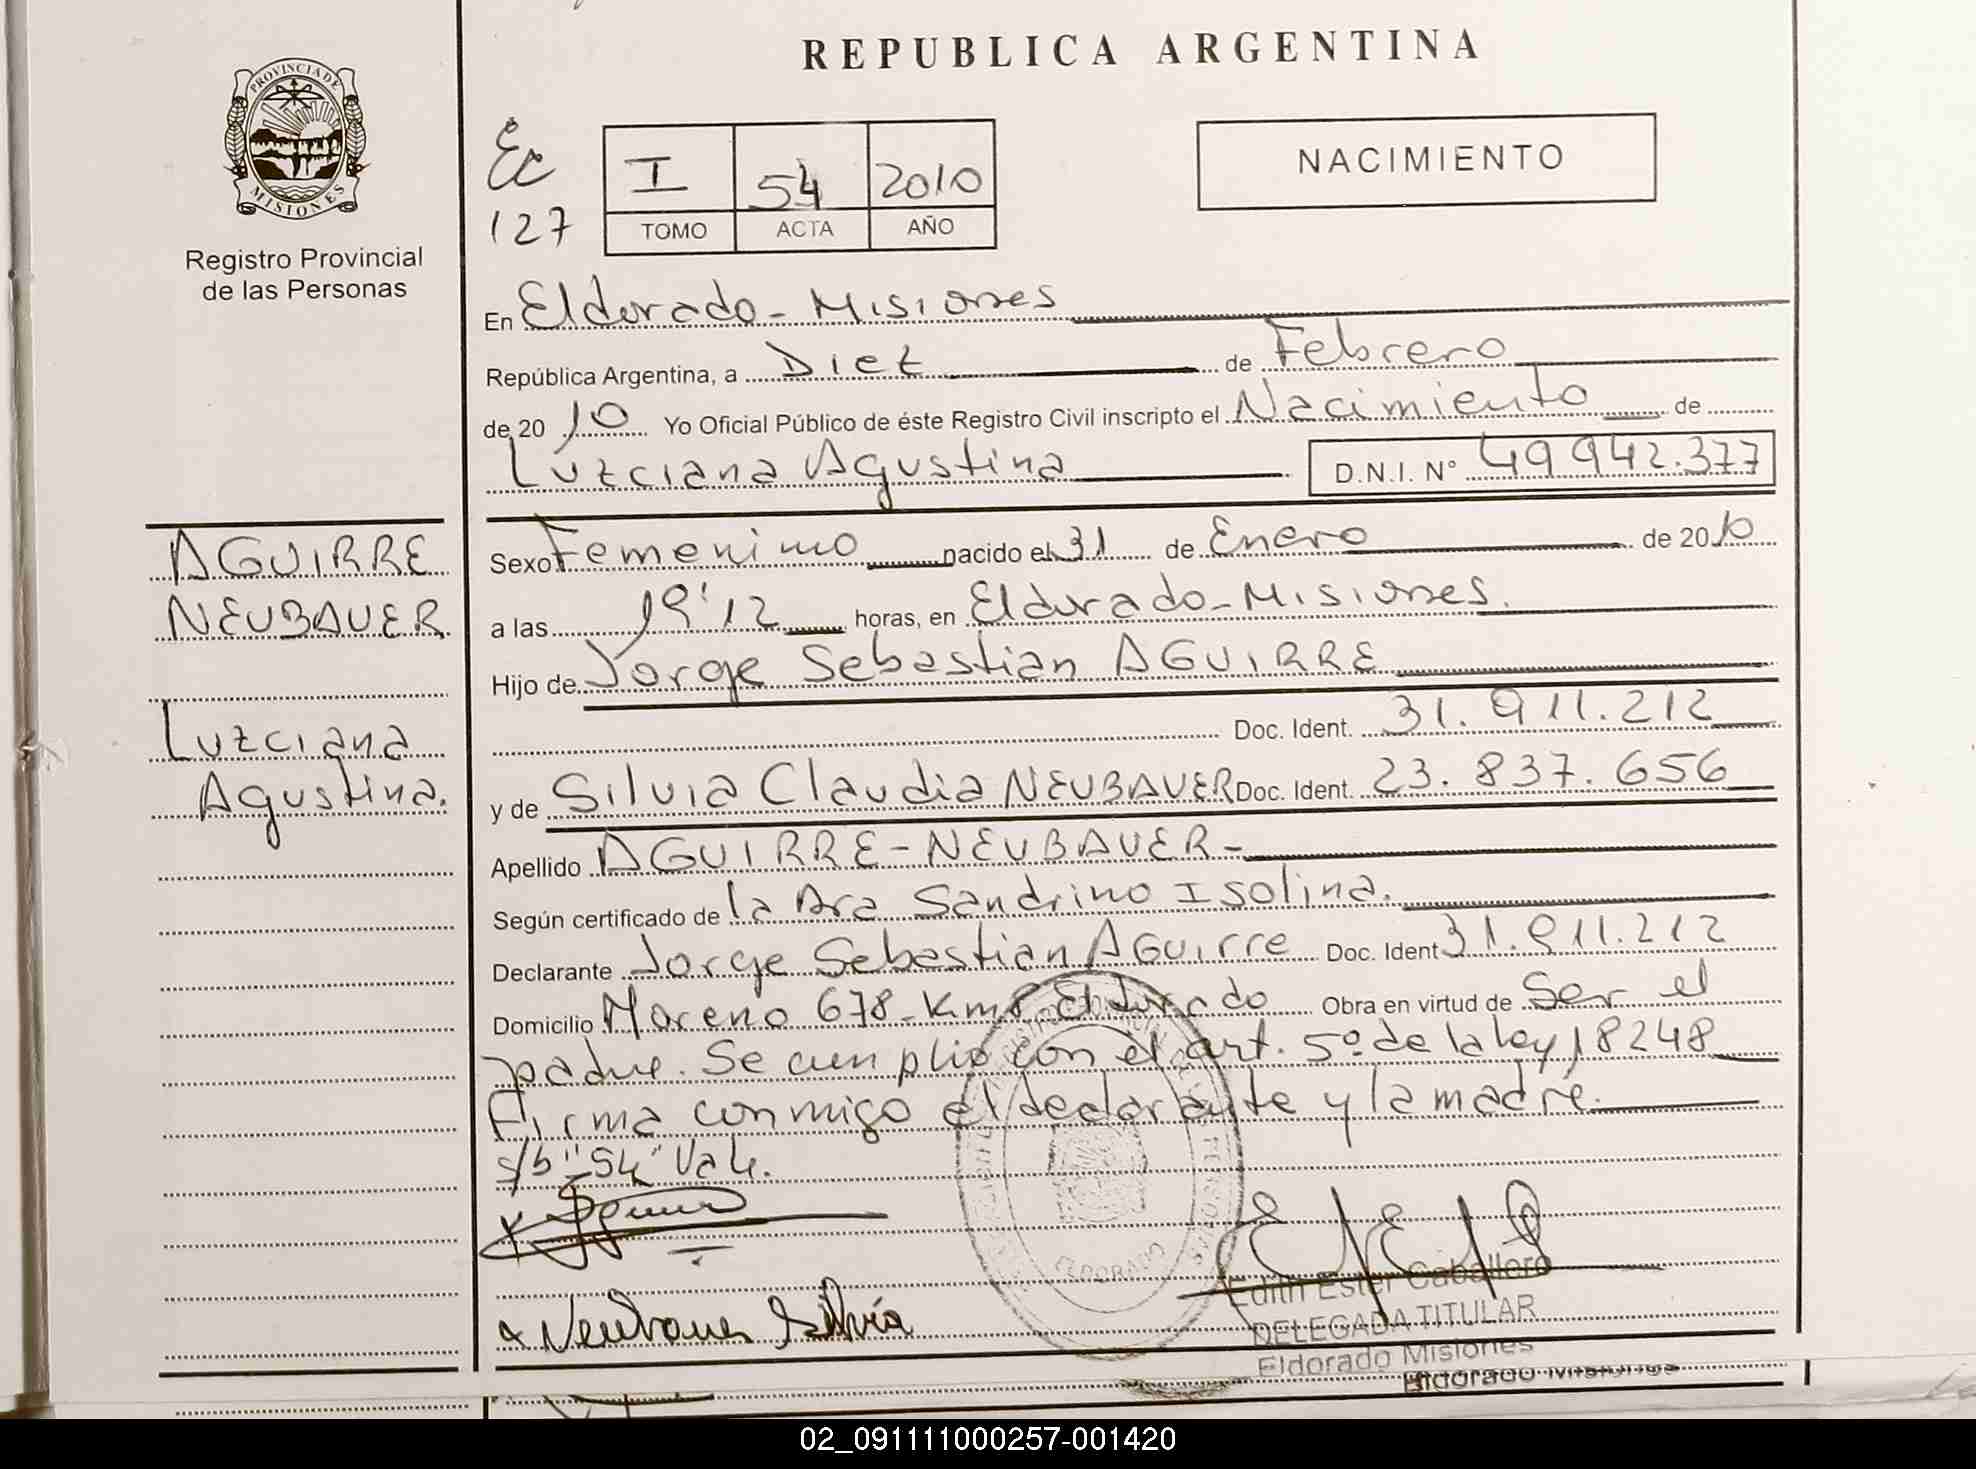 REPUBLICA ARGENTINA
PROVINCIA DE
MISIONES
Registro Provincial
de las Personas
Ec
127
I 54 2010
TOMO ACTA AÑO
NACIMIENTO
En Eldorado - Misiones
República Argentina, a Diez de Febrero
de 2010 Yo Oficial Público de éste Registro Civil inscripto el Nacimiento de
Luzciana Agustina D.N.I. N° 49942.377
AGUIRRE
NEUBAUER
Luzciana
Agustina.
Sexo Femenino nacido el 31 de Enero de 2010
a las 19'12 horas, en Eldorado - Misiones.
Hijo de Jorge Sebastian AGUIRRE
Doc. Ident. 31.911.212
y de Silvia Claudia NEUBAUER Doc. Ident. 23.837.656
Apellido AGUIRRE - NEUBAUER -
Según certificado de la Dra Sandrino Isolina.
Declarante Jorge Sebastian AGuirre Doc. Ident 31.911.212
Domicilio Moreno 678 - Km 8 Eldorado Obra en virtud de Ser el
padre. Se cumplio con el art. 5º de la ley 18248
Firma conmigo el declarante y la madre.
s/b "54" Vale.
Neubauer Silvia
ELDORADO
Edith Ester Caballero
DELEGADA TITULAR
Eldorado Misiones
Eldorado Misiones
02_091111000257-001420